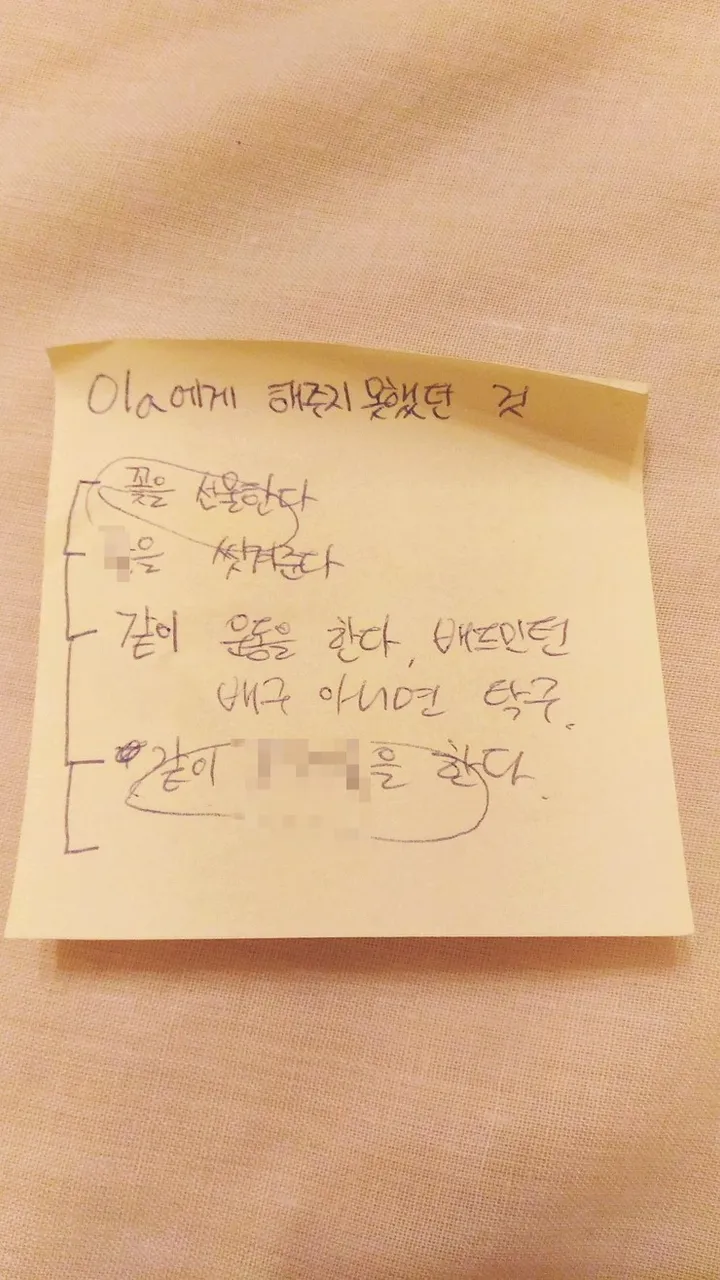 Ola에게 해주지 못했던 것
꽃을 선물한다
을 씻겨준다
같이 운동을 한다, 배드민턴
배구 아니면 탁구.
같이 을 한다.